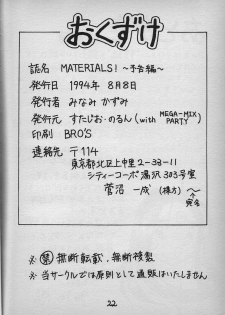 おくずけ
誌名 MATERIALS! 〜予告編〜
発行日 1994年 8月8日
発行者 みなみ かずみ
発行元 すたじお・のるん (with MEGA-MIX PARTY)
印刷 BRO'S
連絡先 〒114
東京都北区上中里2-39-11
シティーコーポ湯沢303号室
菅沼 一成 (様方) へ
↑宛名
※ 禁 無断転載、無断複製
※ 当サークルでは原則として通販はいたしません
22